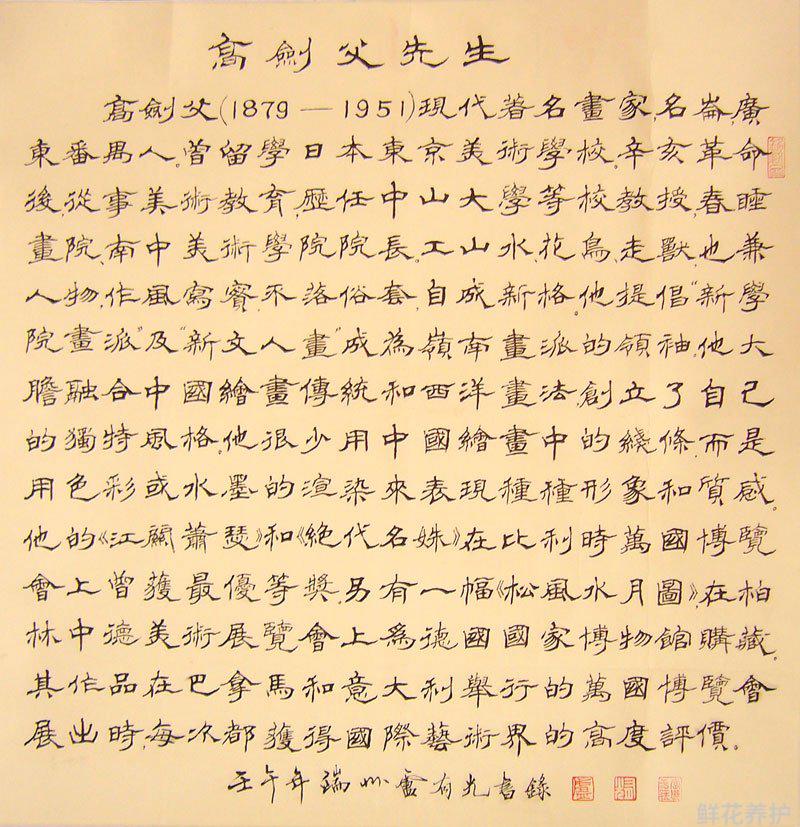 高劍父先生
高劍父(1879—1951)現代著名畫家,名崙,廣
東番禺人。曾留學日本東京美術學校。辛亥革命
後,從事美術教育,歷任中山大學等校教授,春睡
畫院,南中美術學院院長。工山水,花鳥,走獸,也兼
人物,作風寫實,不落俗套,自成新格。他提倡“新學
院畫派”及“新文人畫”成為嶺南畫派的領袖。他大
膽融合中國繪畫傳統和西洋畫法,創立了自己
的獨特風格。他很少用中國繪畫中的綫條,而是
用色彩或水墨的渲染來表現種種形象和質感。
他的《江關蕭瑟》和《絕代名姝》在比利時萬國博覽
會上曾獲最優等獎。另有一幅《松風水月圖》,在柏
林中德美術展覽會上為德國國家博物館購藏。
其作品在巴拿馬和意大利舉行的萬國博覽會
展出時,每次都獲得國際藝術界的高度評價。
壬午年瑞州盧有光書錄
鲜花养护